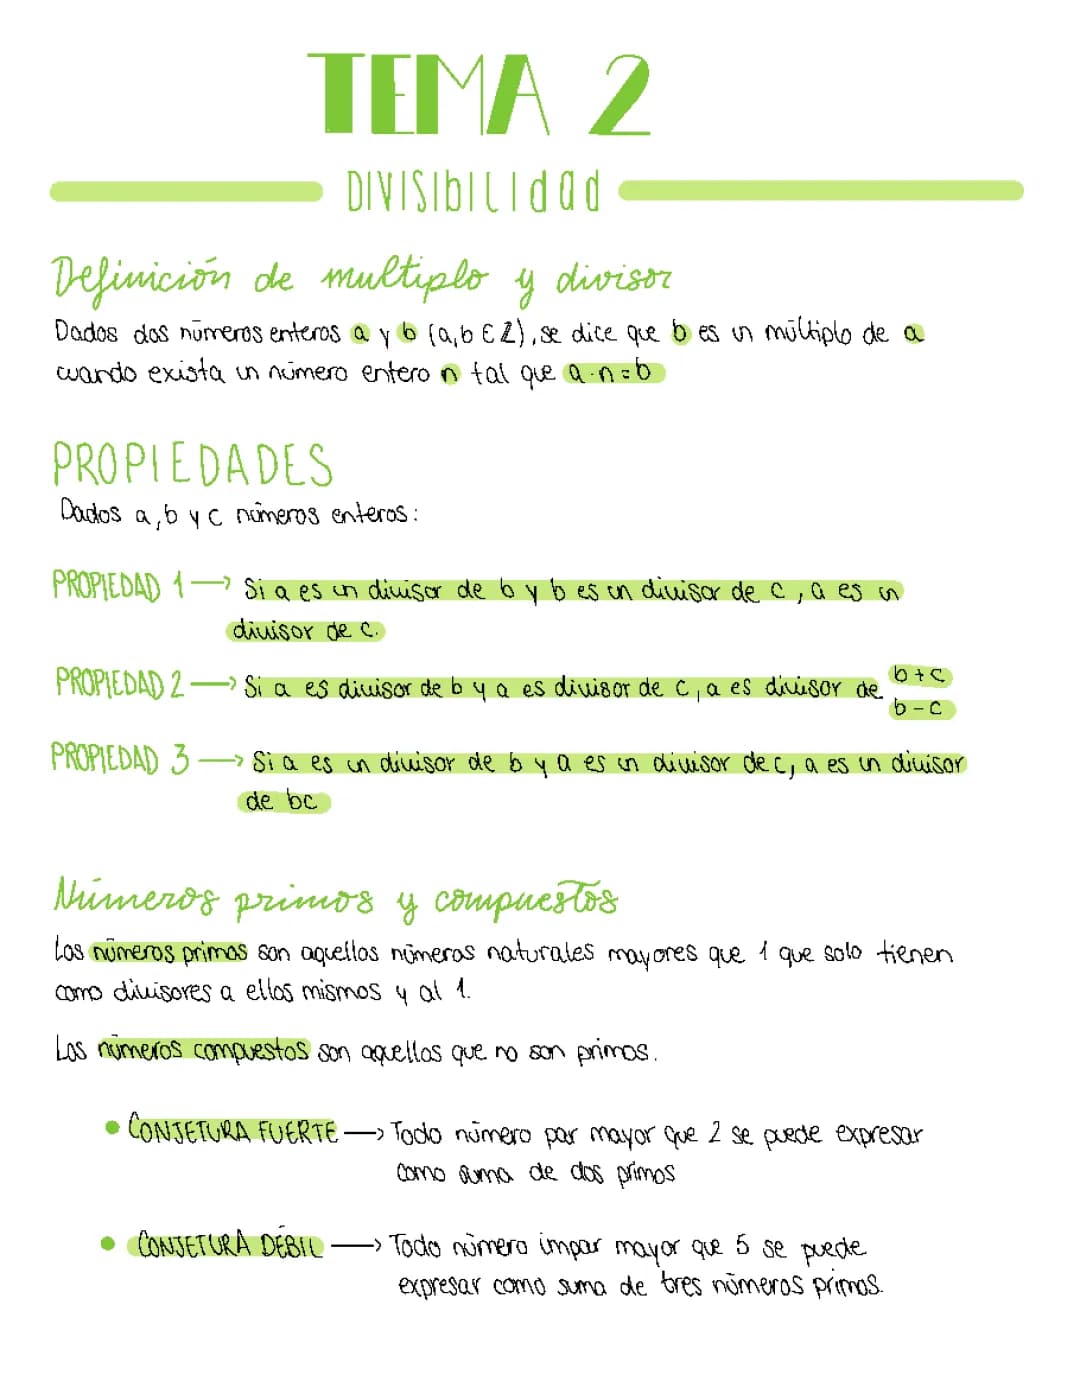 TEMA 2
DIVISIbILIdad
Definición de multiplo y divisor
Dados dos números enteros a y b (a,b ∈ ℤ), se dice que b es un múltiplo de a
cuando exista un número entero n tal que a·n=b
PROPIEDADES
Dados a, b y c números enteros:
PROPIEDAD 1 → Si a es un divisor de b y b es un divisor de c, a es un
divisor de c.
PROPIEDAD 2 → Si a es divisor de b y a es divisor de c, a es divisor de b+c
b-c
PROPIEDAD 3 → Si a es un divisor de b y a es un divisor de c, a es un divisor
de bc
Números primos y compuestos
Los números primos son aquellos números naturales mayores que 1 que solo tienen
como divisores a ellos mismos y al 1.
Los números compuestos son aquellos que no son primos.
• CONJETURA FUERTE → Todo número par mayor que 2 se puede expresar
como suma de dos primos
• CONJETURA DÉBIL → Todo número impar mayor que 5 se puede
expresar como suma de tres números primos.